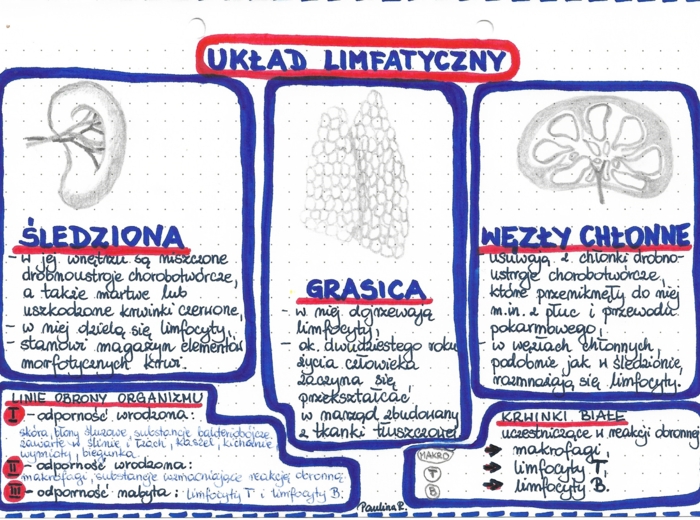 UKŁAD LIMFATYCZNY
ŚLEDZIONA
- w jej wnętrzu są niszczone
drobnoustroje chorobotwórcze,
a także martwe lub
uszkodzone krwinki czerwone,
- w niej dzielą się limfocyty,
- stanowi magazyn elementów
morfotycznych krwi.
GRASICA
- w niej dojrzewają
limfocyty,
- ok. dwudziestego roku
życia człowieka
zaczyna się
przekształcać
w narząd zbudowany
z tkanki tłuszczowej.
WĘZŁY CHŁONNE
usuwają z chłonki drobno-
ustroje chorobotwórcze,
które przeniknęły do niej
m.in. z płuc i przewodu
pokarmowego,
- w węzłach chłonnych,
podobnie jak w śledzionie,
rozmnażają się limfocyty.
LINIE OBRONY ORGANIZMU
I - odporność wrodzona:
skóra, błony śluzowe, substancje bakteriobójcze
zawarte w ślinie i łzach, kaszel, kichanie,
wymioty, biegunka.
II - odporność wrodzona:
makrofagi, substancje wzmacniające reakcję obronną.
III - odporność nabyta: limfocyty T i limfocyty B.
KRWINKI BIAŁE
uczestniczące w reakcji obronnej
MAKRO → makrofagi,
T → limfocyty T,
B → limfocyty B.
Paulina R.